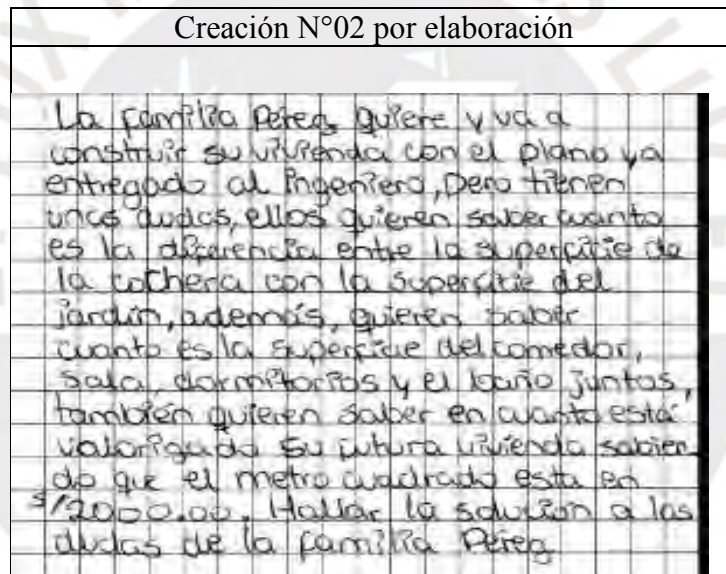 Creación N°02 por elaboración
La familia Perez quiere y va a
construir su vivienda con el plano ya
entregado al ingeniero, pero tienen
unas dudas, ellos quieren saber cuanto
es la diferencia entre la superficie de
la cochera con la superficie del
jardín, además, quieren saber
cuanto es la superficie del comedor,
sala, dormitorios y el baño juntas,
también quieren saber en cuanto está
valorizada su futura vivienda sabien
do que el metro cuadrado esta en
s/2000.00. Hallar la solución a las
dudas de la familia Perez